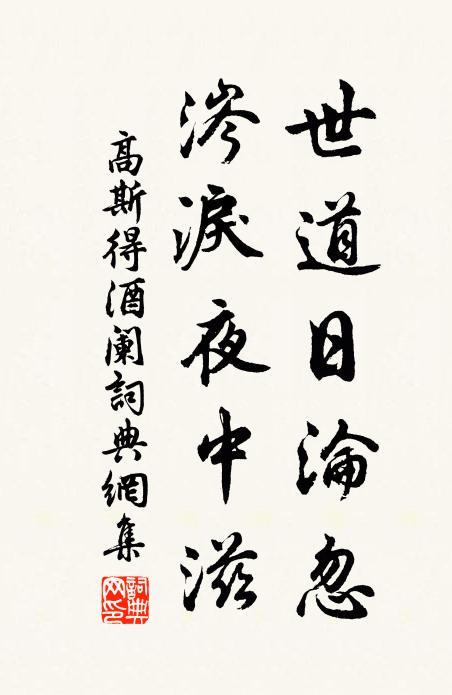 世道日淪忽
涔淚夜中滋
高斯得酒闌詞典網集
詞典网印